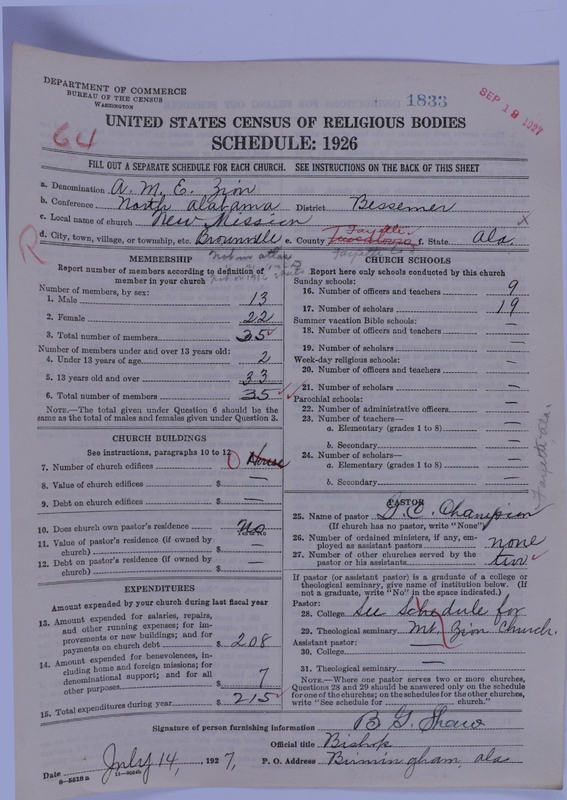 DEPARTMENT OF COMMERCE
BUREAU OF THE CENSUS
WASHINGTON
1833
SEP 19 1927
64
UNITED STATES CENSUS OF RELIGIOUS BODIES
SCHEDULE: 1926
FILL OUT A SEPARATE SCHEDULE FOR EACH CHURCH. SEE INSTRUCTIONS ON THE BACK OF THIS SHEET
a. Denomination A. M. E. Zion
b. Conference North Alabama District Bessemer
c. Local name of church New Mission x
R
Fayette
d. City, town, village, or township, etc. Brownville e. County Tuscaloosa f. State Ala.
Not in atlas
Fayette Co
MEMBERSHIP
Report number of members according to definition of member in your church
Number of members, by sex:
1. Male 13
2. Female 22
3. Total number of members 35
Number of members under and over 13 years old:
4. Under 13 years of age 2
5. 13 years old and over 33
6. Total number of members 35
NOTE.—The total given under Question 6 should be the
same as the total of males and females given under Question 3.
CHURCH BUILDINGS
See instructions, paragraphs 10 to 12
7. Number of church edifices 0 House
8. Value of church edifices $ —
9. Debt on church edifices $ —
10. Does church own pastor's residence No
11. Value of pastor's residence (if owned by
church) $ —
12. Debt on pastor's residence (if owned by
church) $ —
EXPENDITURES
Amount expended by your church during last fiscal year
13. Amount expended for salaries, repairs,
and other running expenses; for im-
provements or new buildings; and for
payments on church debt $ 208
14. Amount expended for benevolences, in-
cluding home and foreign missions; for
denominational support; and for all
other purposes $ 7
15. Total expenditures during year $ 215
CHURCH SCHOOLS
Report here only schools conducted by this church
Sunday schools:
16. Number of officers and teachers 9
17. Number of scholars 19
Summer vacation Bible schools:
18. Number of officers and teachers —
19. Number of scholars —
Week-day religious schools:
20. Number of officers and teachers —
21. Number of scholars —
Parochial schools:
22. Number of administrative officers —
23. Number of teachers—
a. Elementary (grades 1 to 8) —
b. Secondary —
24. Number of scholars—
a. Elementary (grades 1 to 8) —
b. Secondary —
Fayette, Ala.
PASTOR
25. Name of pastor D. C. Champion
(If church has no pastor, write "None")
26. Number of ordained ministers, if any, em-
ployed as assistant pastors none
27. Number of other churches served by the
pastor or his assistants two
If pastor (or assistant pastor) is a graduate of a college or
theological seminary, give name of institution below. (If
not a graduate, write "No" in the space indicated.)
Pastor:
28. College See Schedule for
29. Theological seminary Mt. Zion Church.
Assistant pastor:
30. College —
31. Theological seminary —
NOTE.—Where one pastor serves two or more churches,
Questions 28 and 29 should be answered only on the schedule
for one of the churches; on the schedules for the other churches,
write "See schedule for church."
Signature of person furnishing information B G Shaw
Official title Bishop
Date July 14, 1927, P. O. Address Birmingham, ala
8—5518a